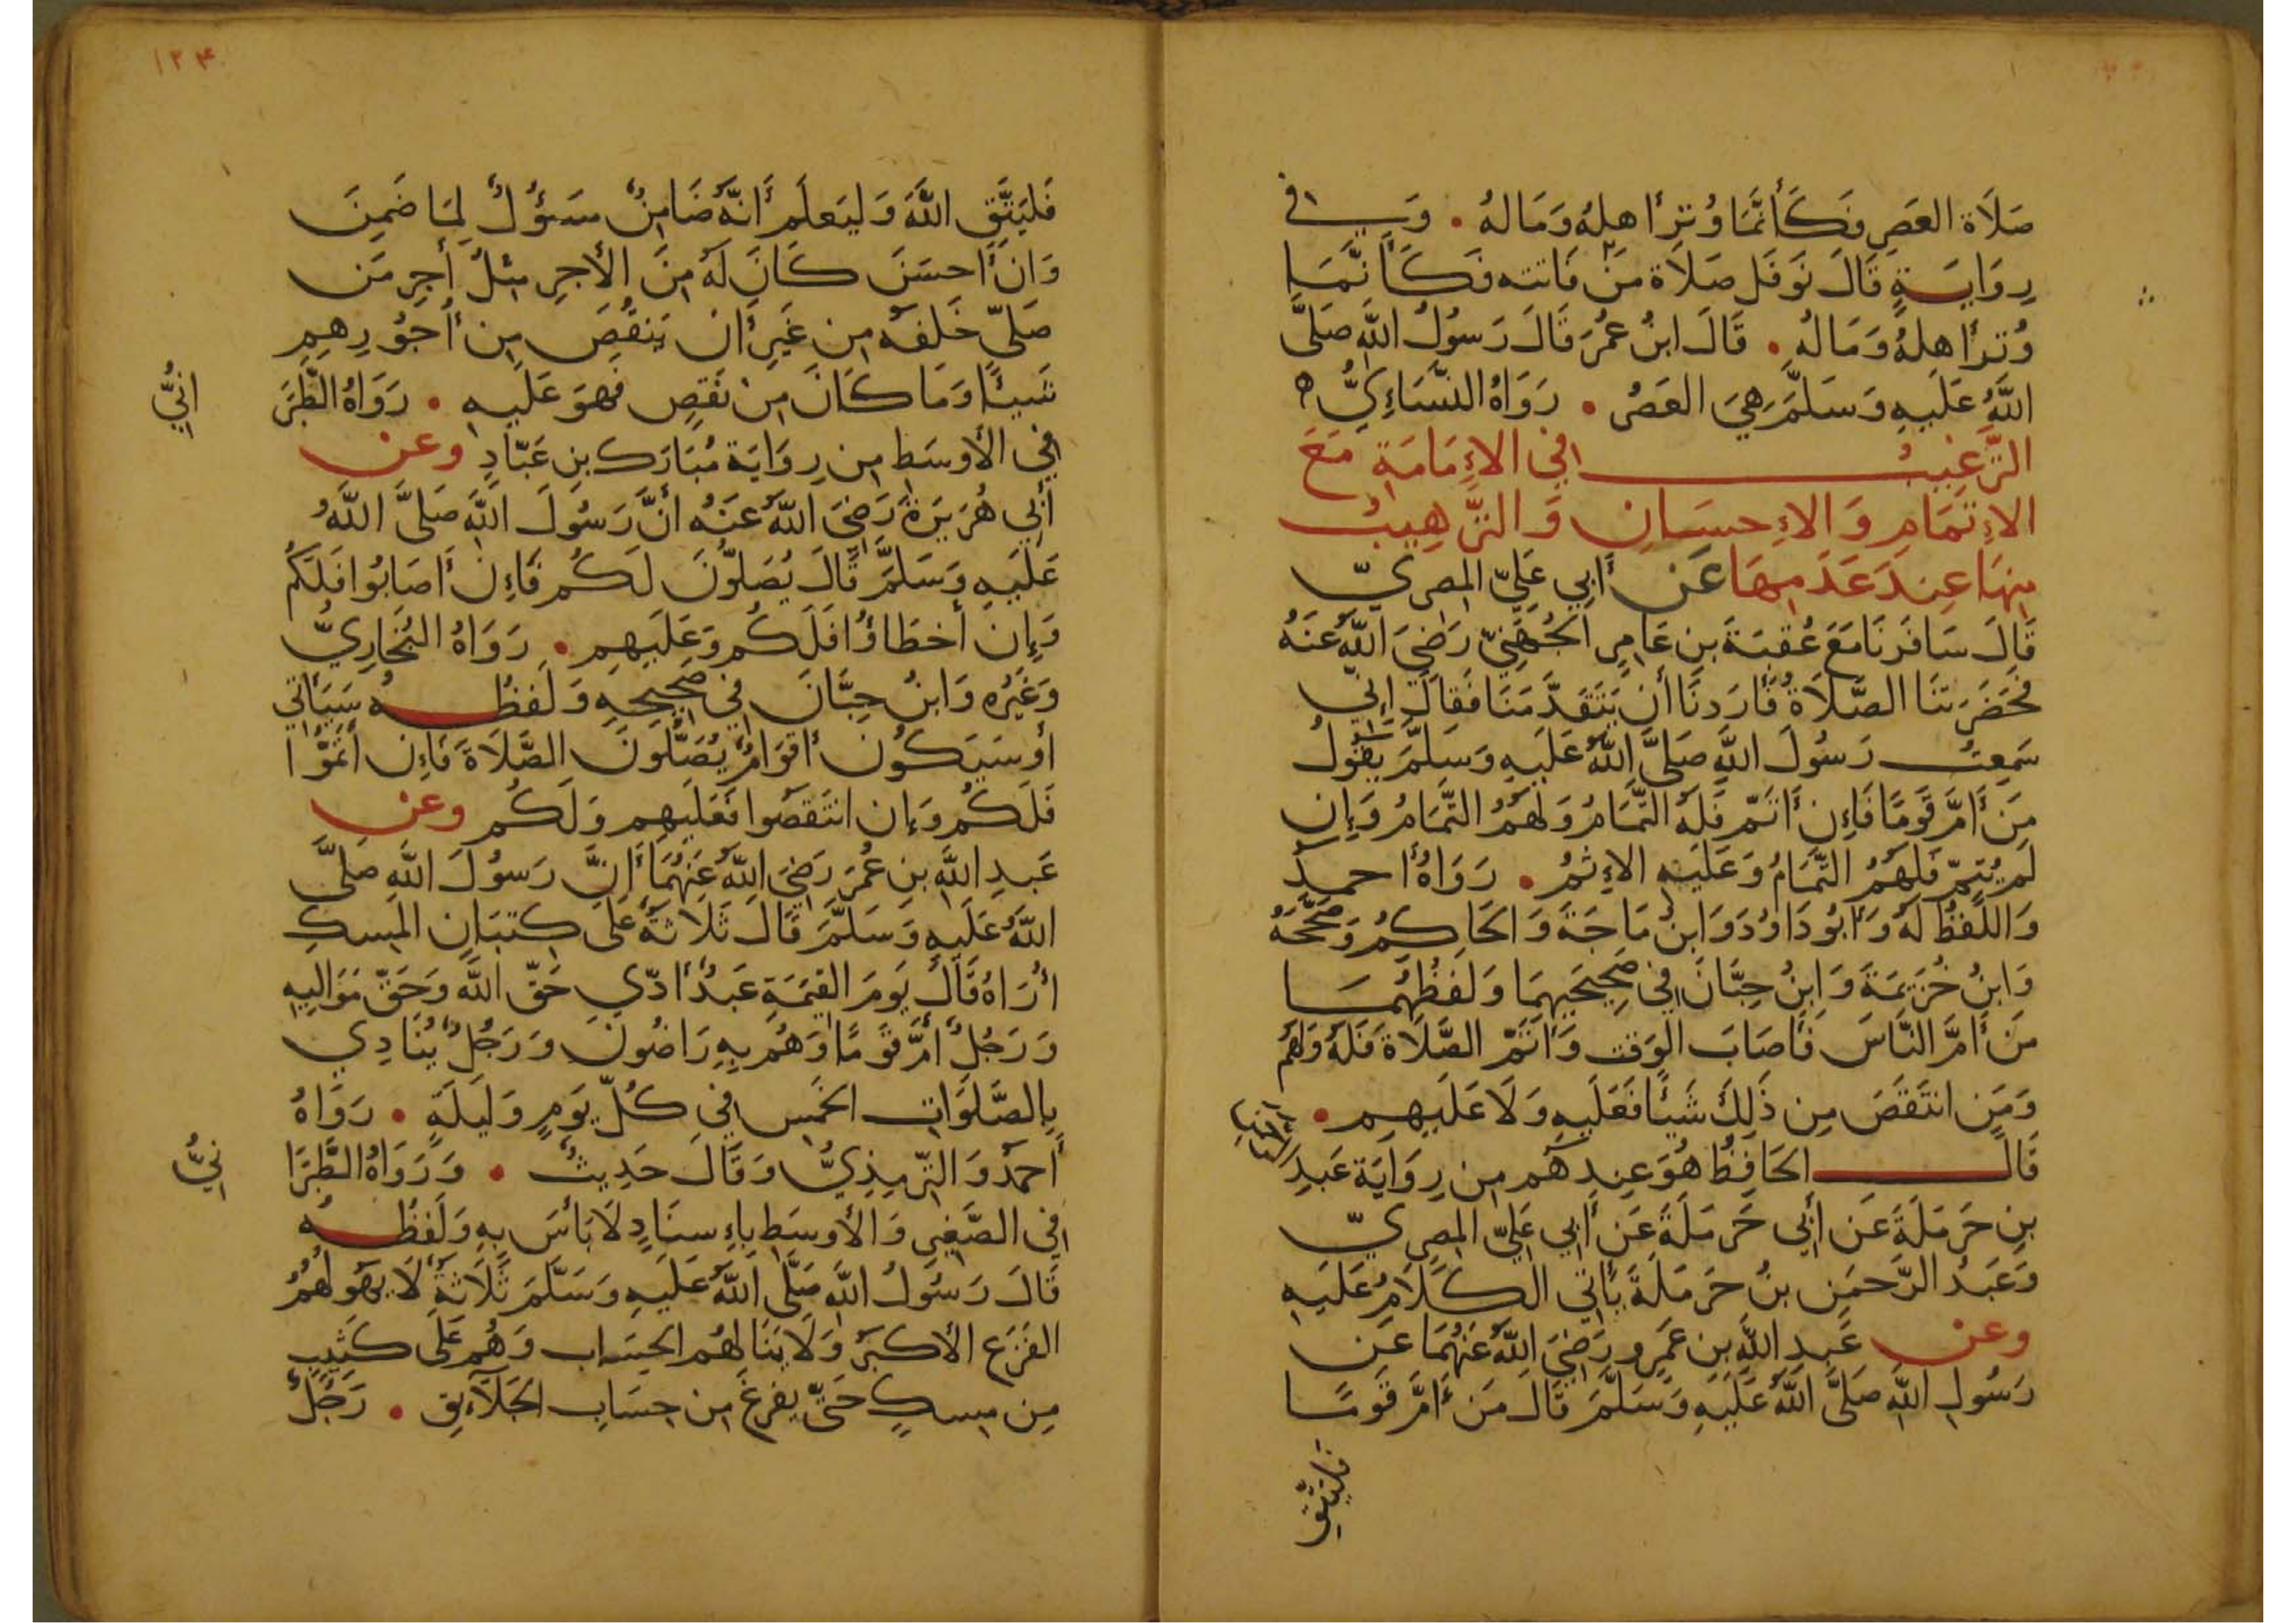 صَلَاة العَصِرِ فَكَأَنَّمَا وُتِرَ أهلهُ وَمَالهُ . وَفي
رِوَايَةٍ قَالَ نَوفَل صَلَاة مَنْ فَاتته فَكَأَنَّمَا
وُتِرَ أهلهُ وَمَالهُ . قَالَ ابنُ عُمَرَ قَالَ رَسُولُ اللَّهِ صَلَّى
اللَّهُ عَلَيهِ وَسَلَّمَ هِيَ العَصرُ . رَوَاهُ النَّسَاءِيُّ ه
التَّرغيبُ في الإِمَامَةِ مَعَ
الإِتمَامِ وَالإِحسَانِ وَالتَّرهِيبُ
مِنهَا عِندَ عَدَمِهَا عَن أَبِي عَلِيّ المِصرِيّ
قَالَ سَافَرنَا مَعَ عُقبَةَ بنِ عَامِرٍ الجُهَنِيّ رَضِيَ اللَّهُ عَنهُ
فَحَضَرَتنَا الصَّلَاةُ فَأَرَدنَا أَن يَتَقَدَّمَنَا فَقَالَ إِنِّي
سَمِعتُ رَسُولَ اللَّهِ صَلَّى اللَّهُ عَلَيهِ وَسَلَّمَ يَقُولُ
مَن أَمَّ قَومًا فَإِن أَتَمّ فَلَهُ التَّمَامُ وَلَهُمُ التَّمَامُ وَإِن
لَم يُتِمّ فَلَهُمُ التَّمَامُ وَعَلَيهِ الإِثمُ . رَوَاهُ أحمدُ
وَاللَّفظُ لَهُ وَأَبُو دَاوُدَ وَابنُ مَاجَةَ وَالحَاكِمُ وَصَحَّحَهُ
وَابنُ خُزَيمَةَ وَابنُ حِبَّانَ فِي صَحِيحَيهِمَا وَلَفظُهُمَا
مَن أَمَّ النَّاسَ فَأَصَابَ الوَقت وَأَتَمّ الصَّلَاةَ فَلَهُ وَلَهُم
وَمَنِ انتَقَصَ مِن ذَلِكَ شَيئًا فَعَلَيهِ وَلَا عَلَيهِم .
قَالَ الحَافِظُ هُوَ عِندَهُم مِن رِوَايَة عَبدِ الرحمن
بنِ حَرمَلَةَ عَن أَبِي حَرمَلَةَ عَن أَبِي عَلِيّ المِصرِيّ
وَعَبدُ الرَّحمَن بنُ حَرمَلَةَ يَأتِي الكَلَامُ عَلَيهِ
وعن عَبدِ اللَّهِ بنِ عَمرٍو رَضِيَ اللَّهُ عَنهُمَا عَن
رَسُولِ اللَّهِ صَلَّى اللَّهُ عَلَيهِ وَسَلَّمَ قَالَ مَن أَمَّ قَومًا
فليتّقِ
١٢٤
فَليَتَّقِ اللَّهَ وَليَعلَم أَنَّهُ ضَامِنٌ مَسؤُلٌ لِمَا ضَمِنَ
وَان أَحسَنَ كَانَ لَهُ مِنَ الأَجرِ مِثلُ أَجرِ مَن
صَلَّى خَلفَهُ مِن غَيرِ أَن يَنقُصَ مِن أُجُورِهِم
شَيئًا وَمَا كَانَ مِن نَقصٍ فَهوَ عَلَيهِ . رَوَاهُ الطَّبَرَ
انيُّ
فِي الأَوسَطِ مِن رِوَايَة مُبَارَك بنِ عَبّادٍ وعن
أَبِي هُرَيرَةَ رَضِيَ اللَّهُ عَنهُ أَنَّ رَسُولَ اللَّهِ صَلَّى اللَّهُ
عَلَيهِ وَسَلَّمَ قَالَ يُصَلُّونَ لَكُم فَإِن أَصَابُوا فَلَكُم
وَإِن أَخطَاؤُا فَلَكُم وَعَلَيهِم . رَوَاهُ البُخَارِيُّ
وَغَيرُه وَابنُ حِبَّانَ فِي صَحِيحِهِ وَلَفظُهُ سَيَأتي
أَو سَيَكُون أَقوَامٌ يُصَلُّونَ الصَّلَاةَ فَإِن أَتَمُّوا
فَلَكُم وَإِن انتَقَصُوا فَعَلَيهِم وَلَكُم وعن
عَبدِ اللَّهِ بنِ عُمَرَ رَضِيَ اللَّهُ عَنهُمَا أَنَّ رَسُولَ اللَّهِ صَلَّى
اللَّهُ عَلَيهِ وَسَلَّمَ قَالَ ثَلَاثَةٌ عَلَى كثبَانِ المِسكِ
أُرَاهُ قَالَ يَومَ القِيمَةِ عَبدٌ أَدّى حَقّ اللَّهِ وَحَقّ مَوَالِيهِ
وَرَجُلٌ أَمَّ قَومًا وَهُم بِهِ رَاضُونَ وَرَجُلٌ يُنَادِي
بِالصَّلَوَاتِ الخَمسِ فِي كُلّ يَومٍ وَلَيلَةٍ . رَوَاهُ
أَحمدُ وَالتِّرمِذِيُّ وَقَالَ حَدِيثٌ . وَرَوَاهُ الطَّبَرَا
نيُّ
فِي الصَّغِيرِ وَالأَوسَطِ بِإِسنَادٍ لَا بَأسَ بِهِ وَلَفظُهُ
قَالَ رَسُولُ اللَّهِ صَلَّى اللَّهُ عَلَيهِ وَسَلَّمَ ثَلَاثَةٌ لَا يَهُولُهُمُ
الفَزَع الأَكبَرُ وَلَا يَنَالهُم الحِسَاب وَهُم عَلَى كَثِيبٍ
مِن مِسكٍ حَتَّى يفرغَ مِن حِسَابِ الخَلَآئِقِ . رَجُلٌ